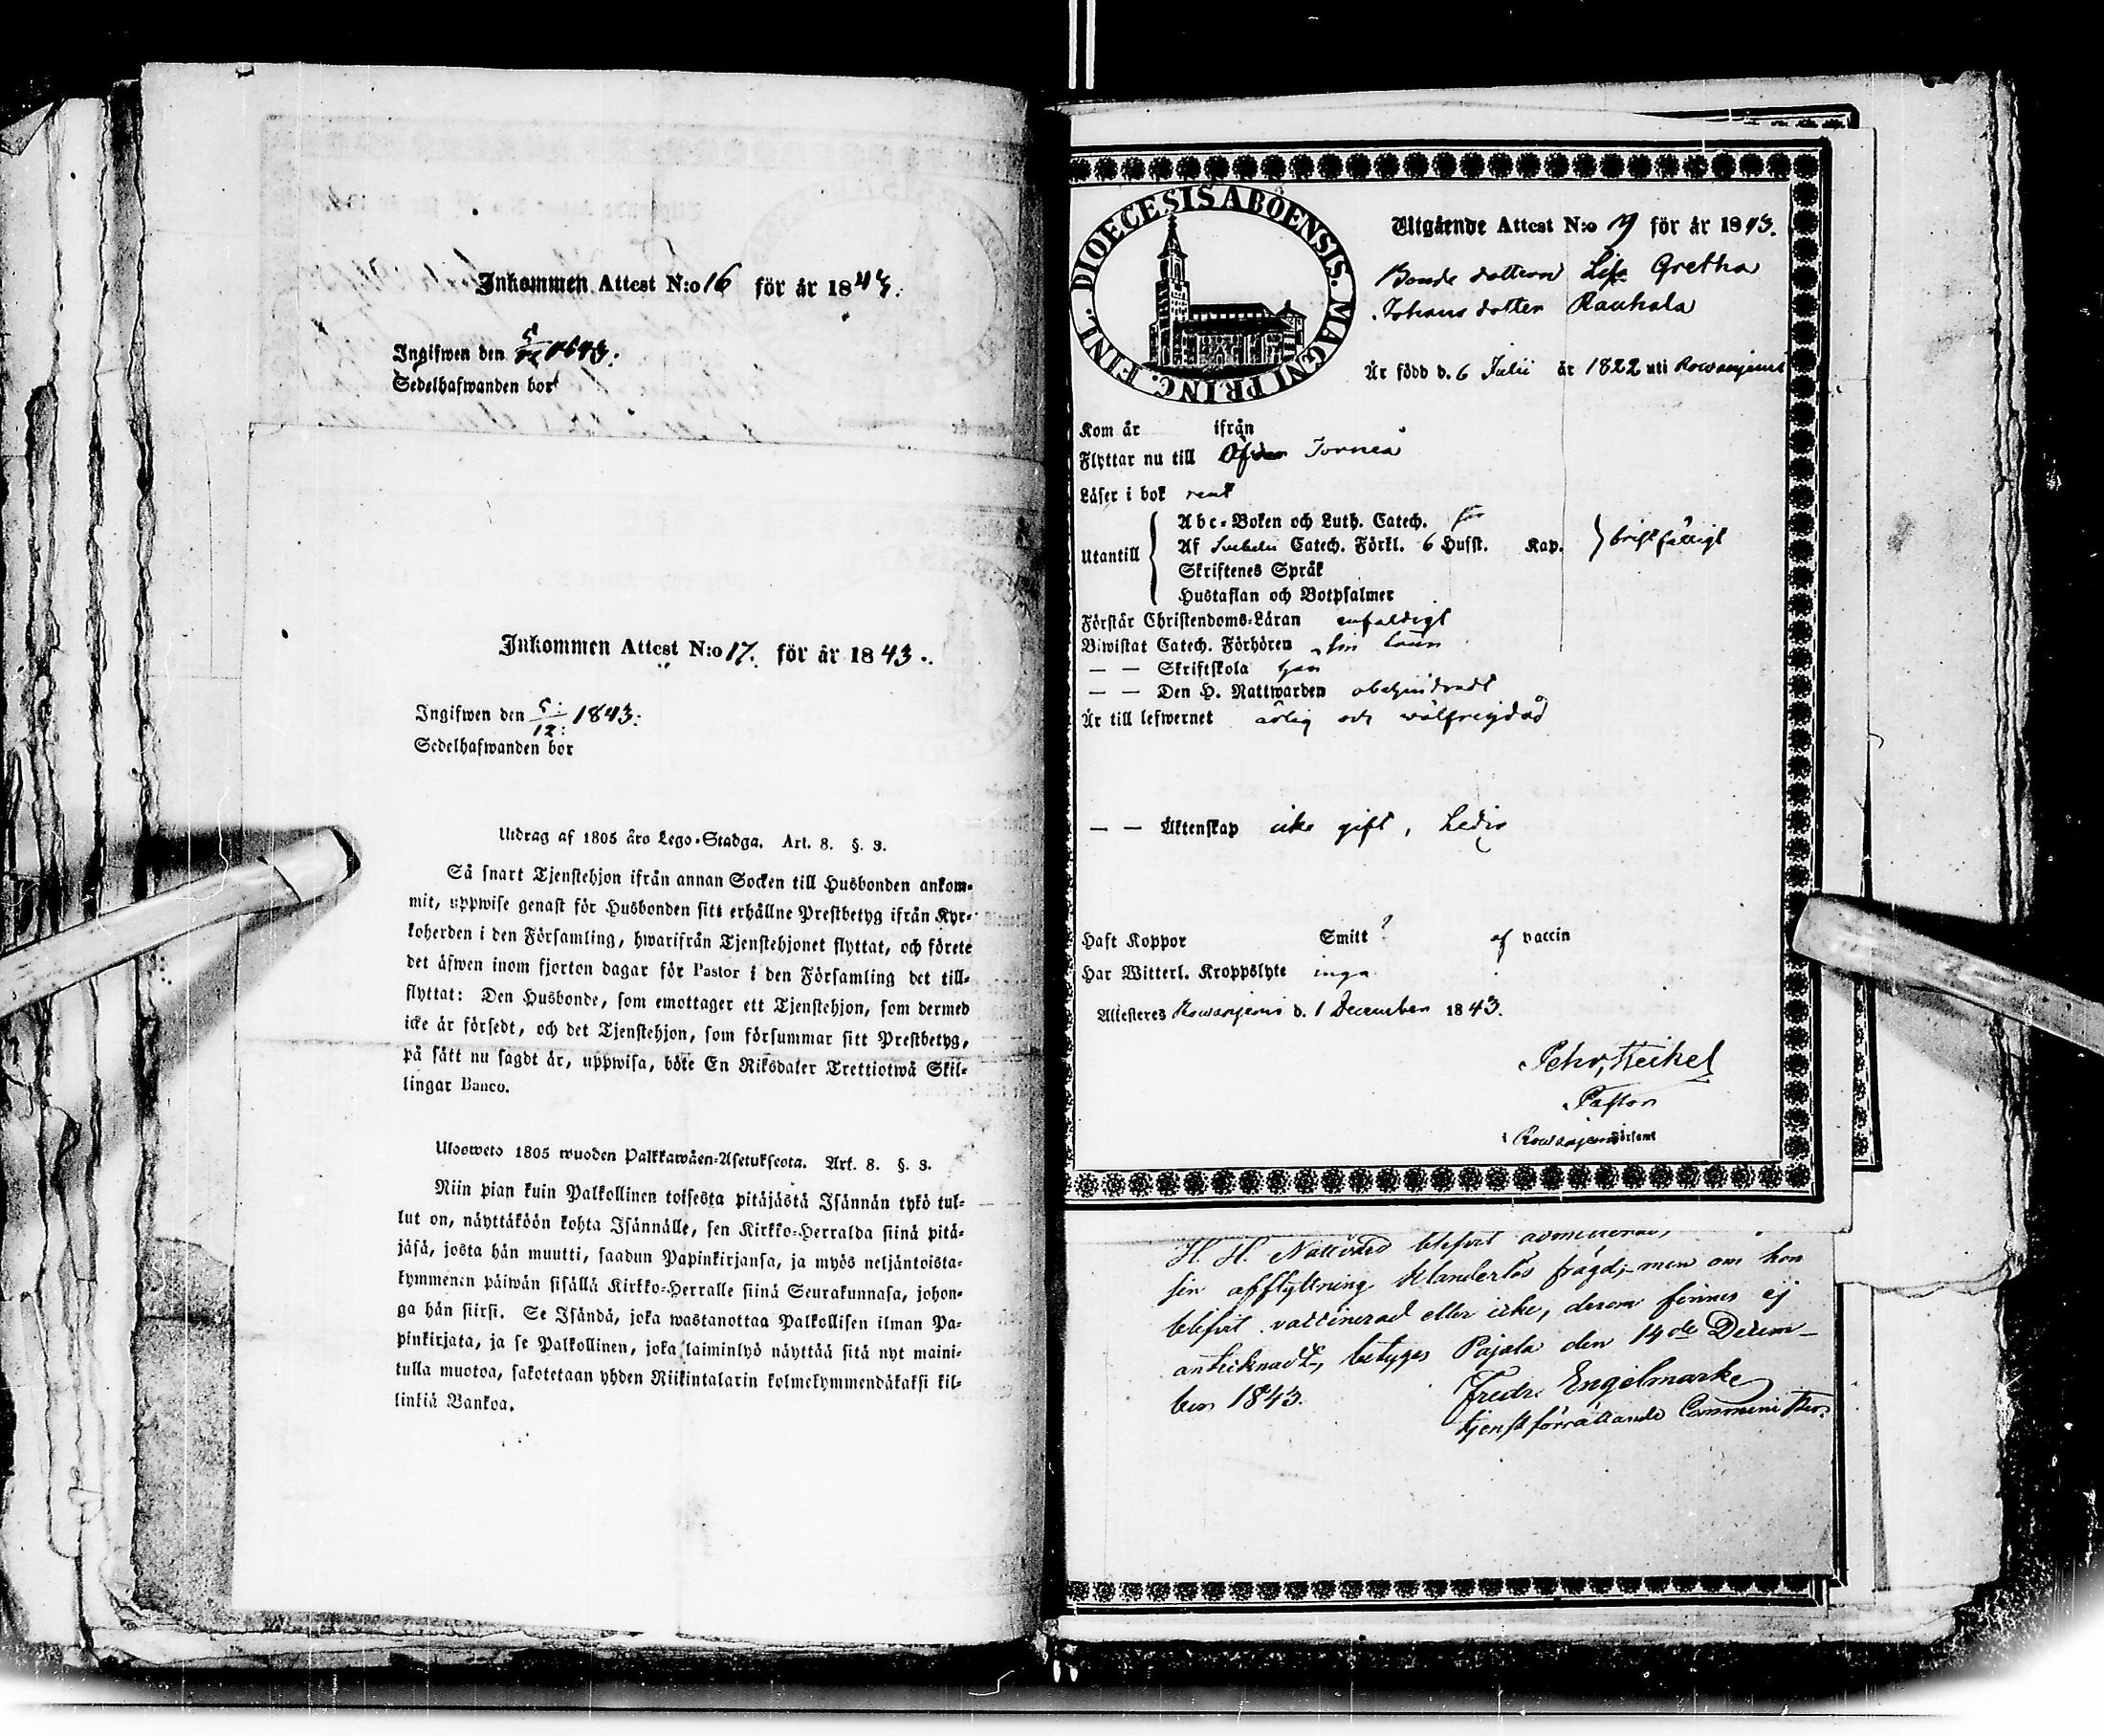 Inkommen Attest N:o 16 för år 1843.
Ingifwen den 5/12 1843:
Sedelhafwanden bor
Inkommen Attest N:o 17. för år 1843.
Ingifwen den 5:/12: 1843:
Sedelhafwanden bor
Utdrag af 1805 års Lego-Stadga. Art. 8. §. 3.
Så snart Tjenstehjon ifrån annan Socken till Husbonden ankom-
mit, uppwise genast för Husbonden sitt erhållne Prestbetyg ifrån Kyr-
koherden i den Församling, hwarifrån Tjenstehjonet flyttat, och förete
det äfwen inom fjorton dagar för Pastor i den Församling det till-
flyttat: Den Husbonde, som emottager ett Tjenstehjon, som dermed
icke är försedt, och det Tjenstehjon, som försummar sitt Prestbetyg,
på sätt nu sagdt är, uppwisa, böte En Riksdaler Trettiotwå Skil-
lingar Banco.
Ulosweto 1805 wuoden Palkkawäen-Asetuksesta. Art. 8. §. 3.
Niin pian kuin Palkollinen toisesta pitäjästä Isännän tykö tul-
lut on, näyttäköön kohta Isännälle, sen Kirkko-Herralda siinä pitä-
jäsä, josta hän muutti, saadun Papinkirjansa, ja myös neljäntoista-
kymmenen päiwän sisällä Kirkko-Herralle siinä Seurakunnasa, johon-
ga hän siirsi. Se Isändä, joka wastanottaa Palkollisen ilman Pa-
pinkirjata, ja se Palkollinen, joka laiminlyö näyttää sitä nyt maini-
tulla muotoa, sakotetaan yhden Riikintalarin kolmekymmendäkaksi kil-
linkiä Bankoa.
DIOECESIS ABOËNSIS. MAGNI PRINC. FINL.
Utgående Attest N:o för år 1843.
Bonde dottern Lisa Gretha
Johans dotter Rauhala
Är född d. 6 Julii år 1822 uti Rowanjemi
Kom år ifrån
Flyttar nu till Öfwer Torneå
Läser i bok rent
Utantill
Abc-Boken och Luth. Catech.
Af Svebelii Catech. Förkl. 6 Hufst. Kap. bristfälligt
Skriftenes Språk
Hustaflan och Botpsalmer
Förstår Christendoms-Läran enfaldigt
Biwistat Catech. Förhören
— — Skriftskola
— — Den H. Nattwarden obehindradt
Är till lefwernet ärlig och wälfrejdad
— — Äktenskap icke gift, Ledig
Haft Koppor Smitt ? af vaccin
Har Witterl. Kroppslyte inga
Attesteres Rowanjemi d. 1 December 1843.
Pehr Heikel
Pastor
i Rowanjemi Församl
H. H. Nattvard blifvit admitterad,
sin afflyttning klanderlös frägd;- men om hon
blifvit vaccinerad eller icke, derom finnes ej
antecknadt, betyges Pajala den 14de Decem-
ber 1843. Fredr. Engelmark
tjenstförrättande Comminister.